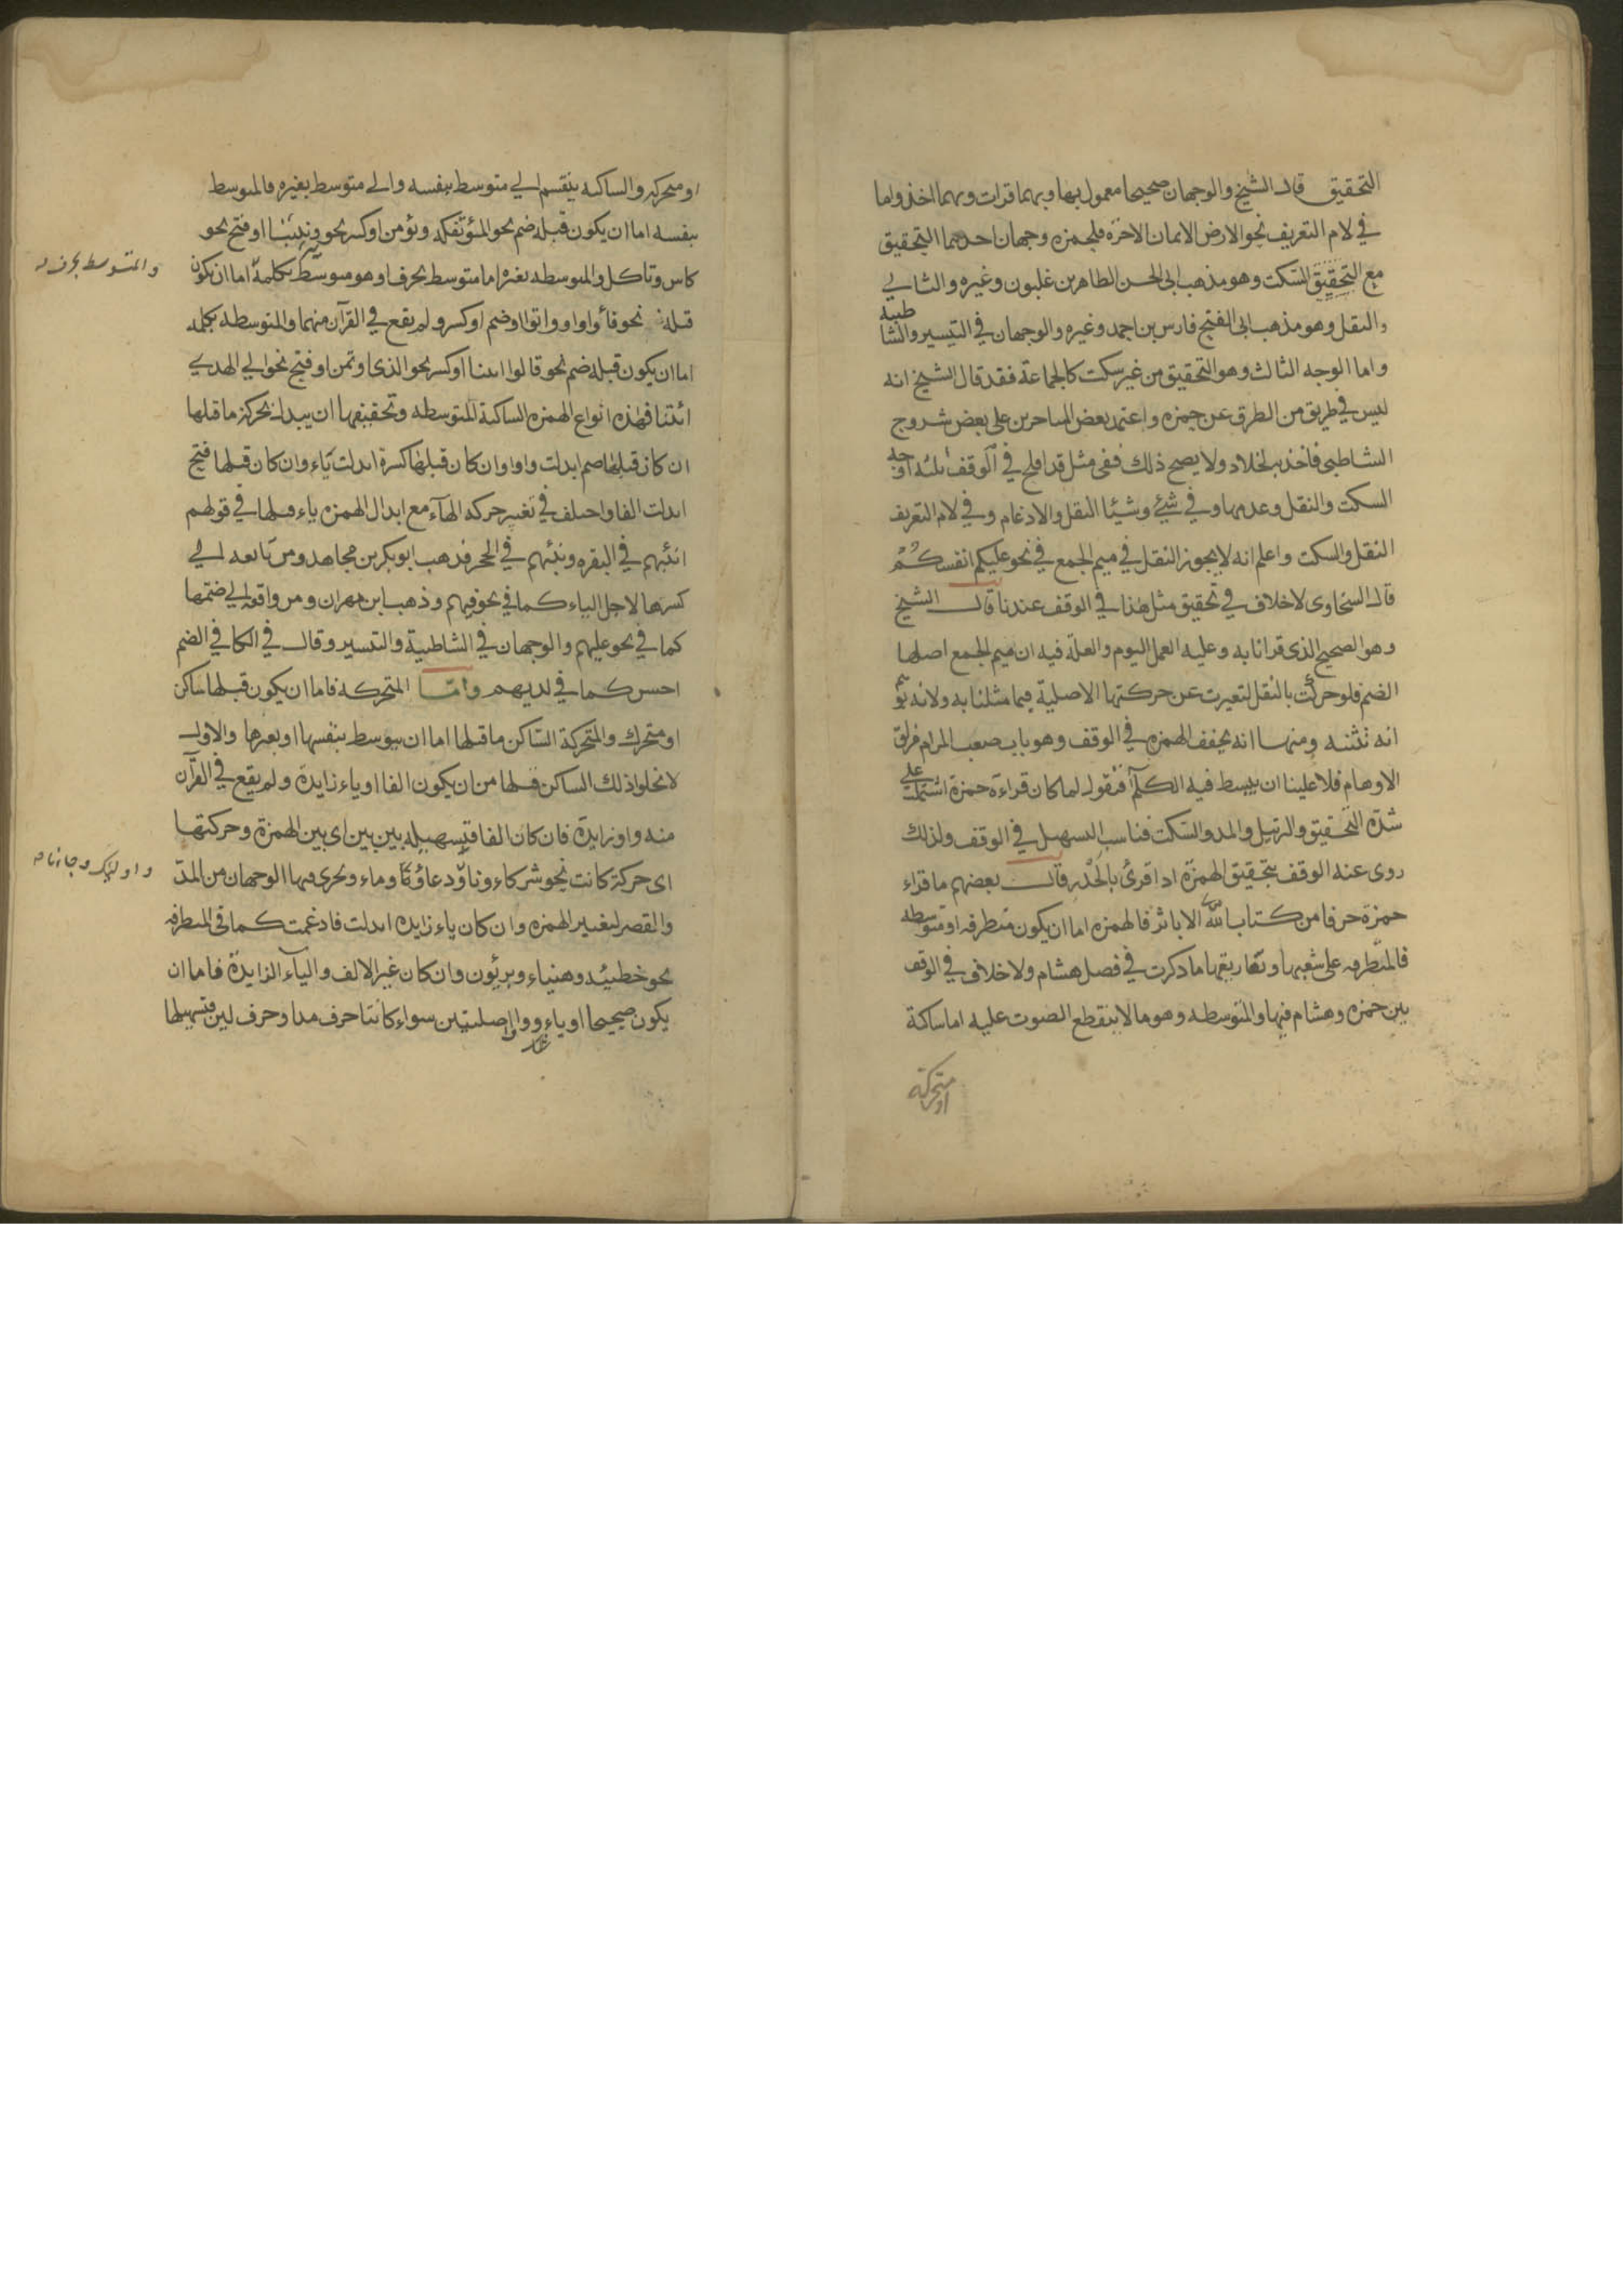 التحقيق قال الشيخ والوجهان صحيحا معمول بها وبهما قرات وبهما اخذ واما
في لام التعريف نحو الارض الايمان الاخرة فلحمزه وجهان احدهما التحقيق
مع التحقيق السكت وهو مذهب ابي الحسن الطاهر بن غلبون وغيره والثاني
والنقل وهو مذهب ابي الفتح فارس بن احمد وغيره والوجهان في التيسير والشاطبية
واما الوجه الثالث وهو التحقيق من غير سكت كالجماعة فقد قال الشيخ انه
ليس في طريق من الطرق عن حمزه واعتمد بعض المتاخرين على بعض شروح
الشاطبي فاخذ به لخلاد ولا يصح ذلك ففي مثل قد افلح في الوقف ثلثه اوجه
السكت والنقل وعدمها وفي شيئ وشيئا النقل والادغام وفي لام التعريف
النقل والسكت واعلم انه لا يجوز النقل في ميم الجمع في نحو عليكم انفسكم
قال السخاوى لا خلاف في تحقيق مثل هذا في الوقف عندنا قال الشيخ
وهو الصحيح الذى قرانا به وعليه العمل اليوم والعلة فيه ان ميم الجمع اصلها
الضم فلو حركت بالنقل لتغيرت عن حركتها الاصلية فيما مثلنا به ولانه
انه تثنيه ومنها انه يخفف الهمزه في الوقف وهو باب صعب المرام
الاوهام فلا علينا ان يبسط فيه الكلام فنقول لما كان قراءة حمزة اشتملت على
شدة التحقيق والترتيل والمد والسكت فناسب التسهيل في الوقف ولذلك
روى عنه الوقف بتحقيق الهمزة اذا قرئ بالحدر قال بعضهم ما قراء
حمزة حرفا من كتاب الله الا باثر فالهمزه اما ان يكون متطرفه او متوسطه
فالمتطرفه على شعبها وتفاريقها ما ذكرت في فصل هشام ولا خلاف في الوقف
بين حمزه وهشام فيها والمتوسطه وهو ما لا ينقطع الصوت عليه اما ساكنة
او متحركة
او متحركه والساكنه ينقسم الي متوسط بنفسه والى متوسط بغيره فالمتوسط
بنفسه اما ان يكون قبله ضم نحو المؤتفكه ويؤمن او كسر نحو ونبئنا او فتح نحو
كاس وتاكل والمتوسطه بغيره اما متوسط بحرف او هو متوسط بكلمة اما ان يكون
قبله نحو فأووا واتوا او ضم او كسر ولم يقع في القرآن منهما والمتوسطه بكلمه
اما ان يكون قبله ضم نحو قالوا ائتنا او كسر نحو الذى اوتمن او فتح نحو الي الهدي
ائتنا فهذه انواع الهمزه الساكنة المتوسطه وتخفيفها ان يبدل بحركة ما قبلها
ان كان قبلها ضم ابدلت واوا وان كان قبلها كسرة ابدلت ياء وان كان قبلها فتح
ابدلت الفا واختلف في تغيير حركه الهآء مع ابدال الهمزه ياء قبلها في قولهم
انبئهم في البقره ونبئهم في الحجر فذهب ابو بكر بن مجاهد ومن تابعه الي
كسرها لاجل الياء كما في نحو فيهم وذهب ابن مهران ومن وافقه الي ضمها
كما في نحو عليهم والوجهان في الشاطبية والتيسير وقال في الكافي الضم
احسن كما في لديهم وامّا المتحركه فاما ان يكون قبلها ساكن
او متحرك والمتحركة الساكن ما قبلها اما ان يتوسط بنفسها او بغيرها والاول
لا يخلوا ذلك الساكن قبلها من ان يكون الفا او ياء زايدة ولم يقع في القرآن
منه واو زايدة فان كان الفا فتسهيله بين بين اى بين الهمزة وحركتها
اى حركة كانت نحو شركاء ونا ودعاؤكم وماء ويجرى فيها الوجهان من المدّ
والقصر لتغيير الهمزه وان كان ياء زايده ابدلت فادغمت كما في المتطرفه
نحو خطيئه وهنياء وبريئون وان كان غير الالف والياء الزايدة فاما ان
يكون صحيحا او ياء وواوا اصليتين سواء كانتا حرف مد او حرف لين فتسهيلها
والمتوسط بحرف
واولئك وجاءنا